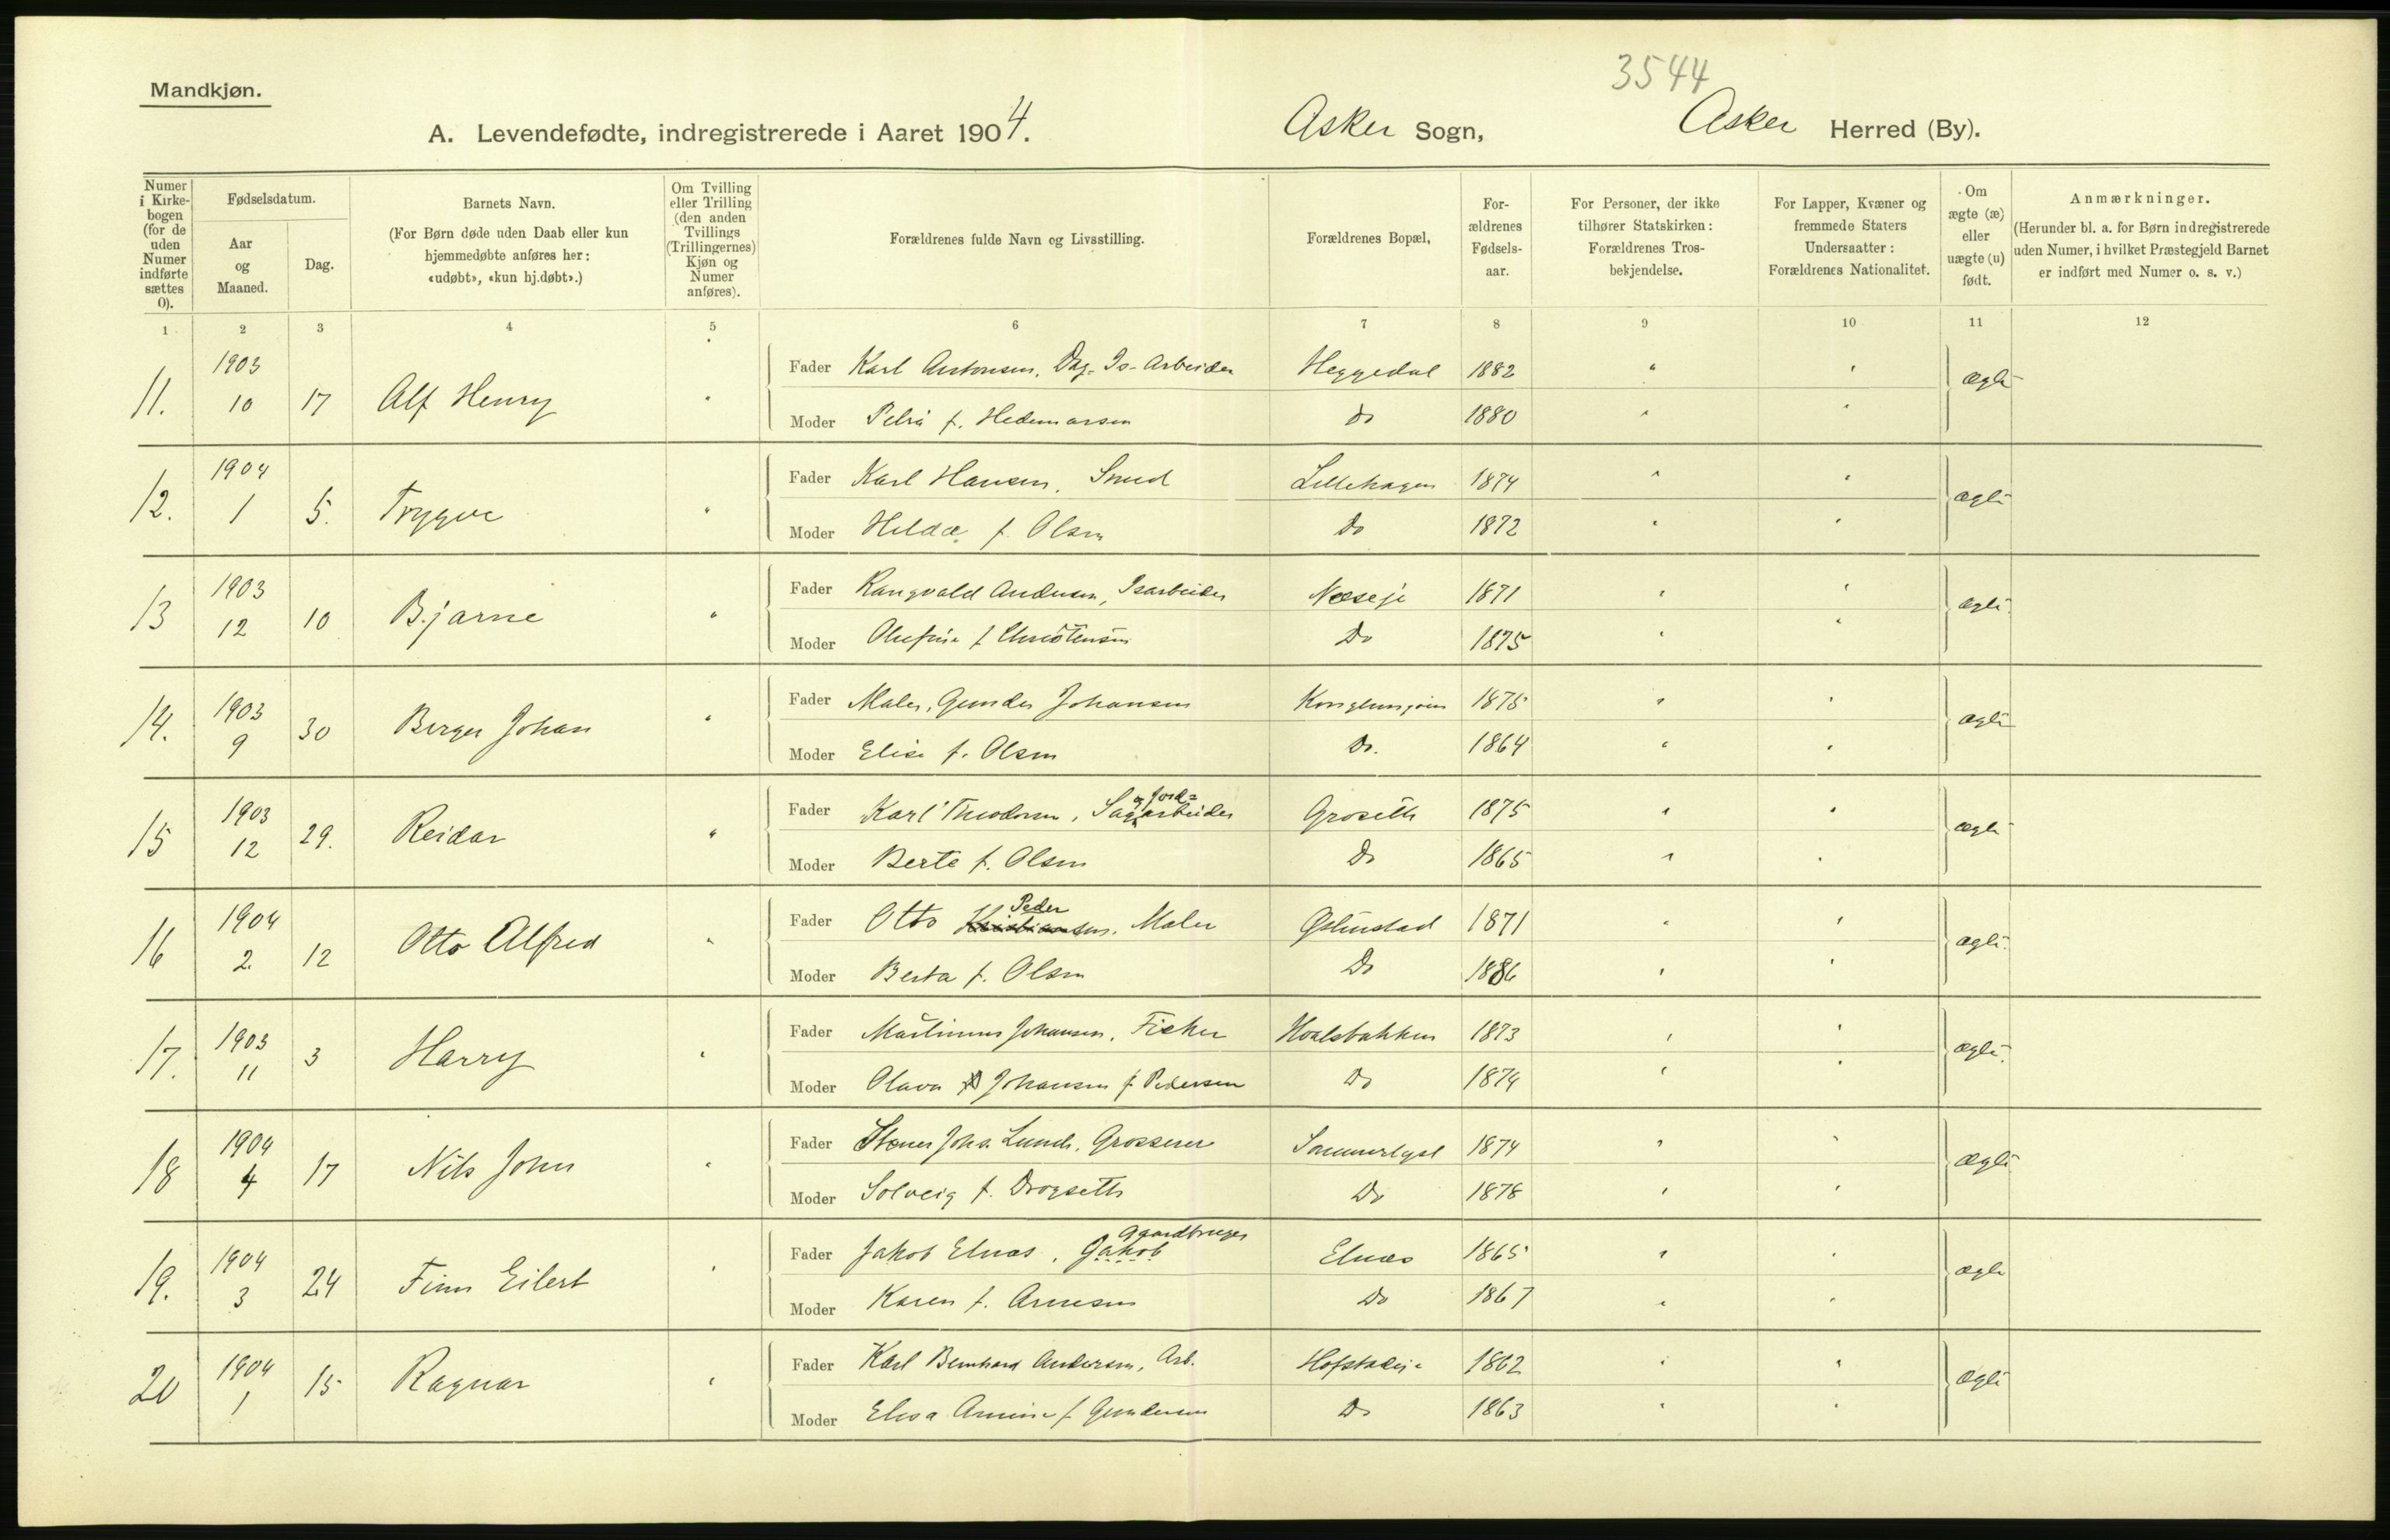 3544
Mandkjøn.
A. Levendefødte, indregistrerede i Aaret 1904. Asker Sogn, Asker Herred (By).
Numer i Kirkebogen (for de uden Numer indførte sættes 0).
Fødselsdatum.
Aar og Maaned.
Dag.
Barnets Navn.
(For Børn døde uden Daab eller kun hjemmedøbte anføres her: «udøbt», «kun hj.døbt».)
Om Tvilling eller Trilling (den anden Tvillings (Trillingernes) Kjøn og Numer anføres).
Forældrenes fulde Navn og Livsstilling.
Forældrenes Bopæl,
Forældrenes Fødselsaar.
For Personer, der ikke tilhører Statskirken: Forældrenes Trosbekjendelse.
For Lapper, Kvæner og fremmede Staters Undersaatter: Forældrenes Nationalitet.
Om ægte (æ) eller uægte (u) født.
Anmærkninger.
(Herunder bl. a. for Børn indregistrerede uden Numer, i hvilket Præstegjeld Barnet er indført med Numer o. s. v.)
1 2 3 4 5 6 7 8 9 10 11 12
11. 1903 10 17 Alf Henry " Fader Karl Antonsen, Dag- Is- Arbeider Heggedal 1882 " " ægte
Moder Petra f. Hedemarsen do 1880 " "
12. 1904 1 5. Trygve " Fader Karl Hansen, Smed Lillehagen 1874 " " ægte
Moder Hilda f. Olsen Do 1872 " "
13 1903 12 10 Bjarne " Fader Rangvald Andersen, Isarbeider Næseje 1871 " " ægte
Moder Olufine f. Christensen Do 1875 " "
14. 1903 9 30 Birger Johan " Fader Maler, Gunder Johansen 1875 " " ægte
Moder Elise f. Olsen Do. 1864 " "
15 1903 12 29. Reidar " Fader Karl Theodorsen, Sag og Jord=arbeider Groseth 1875 " " ægte
Moder Berte f. Olsen Do 1865 " "
16 1904 2. 12 Otto Alfred " Fader Otto Kristiansen Peder, Maler 1871 " " ægte
Moder Berta f. Olsen Do 1886 " "
17. 1903 11 3 Harry " Fader Martinus Johansen, Fisker Hvalsbakken 1873 " " ægte
Moder Olava Johansen f. Pedersen Do 1874 " "
18 1904 4 17 Nils John " Fader Johs. Lund, Grosserer Sommerlyst 1874 " " ægte
Moder Solveig f. Drogseth Do 1878 " "
19. 1904 3 24 Finn Eilert " Fader Jakob Elnæs, Jakob Gaardbruger Elnæs 1865 " " ægte
Moder Karen f. Arnesen Do 1867 " "
20 1904 1 15 Ragnar " Fader Karl Bernhard Andersen, Arb. Hofstadeje 1862 " " ægte
Moder Elisa f. Gundersen Do 1863 " "